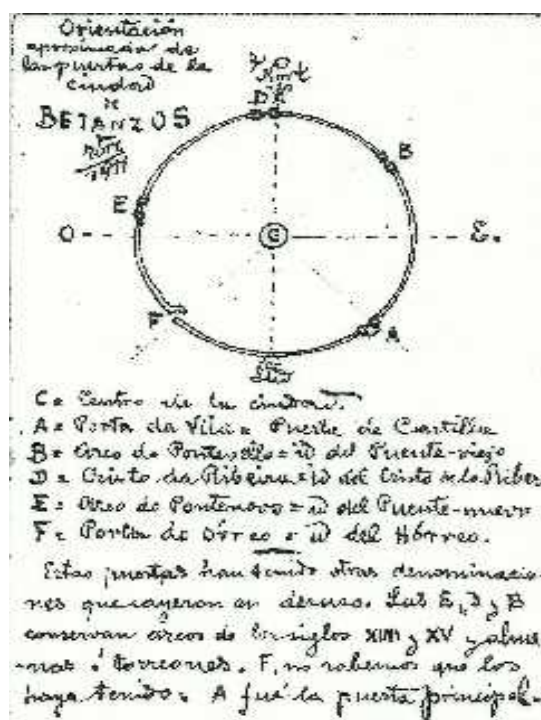 Orientación
aproximada de
las puertas de la
ciudad
de
BETANZOS
Norte
D
B
E
O
C
E.
F
A
Sur
C = Centro de la ciudad.
A = Porta da Vila = Puerta de Castilla
B = Arco da Pontevella = id del Puente-viejo
D = Cristo da Ribeira = id del Cristo de la Riber
E = Arco da Pontenova = id del Puente-nuevo
F = Porta do Órreo = id del Hórreo.
Estas puertas han tenido otras denominacio-
nes que cayeron en desuso. Las E, D y B
conservan arcos de los siglos y XV y alme-
nas ó torreones. F, no sabemos que los
haya tenido. A fué la puerta principal.